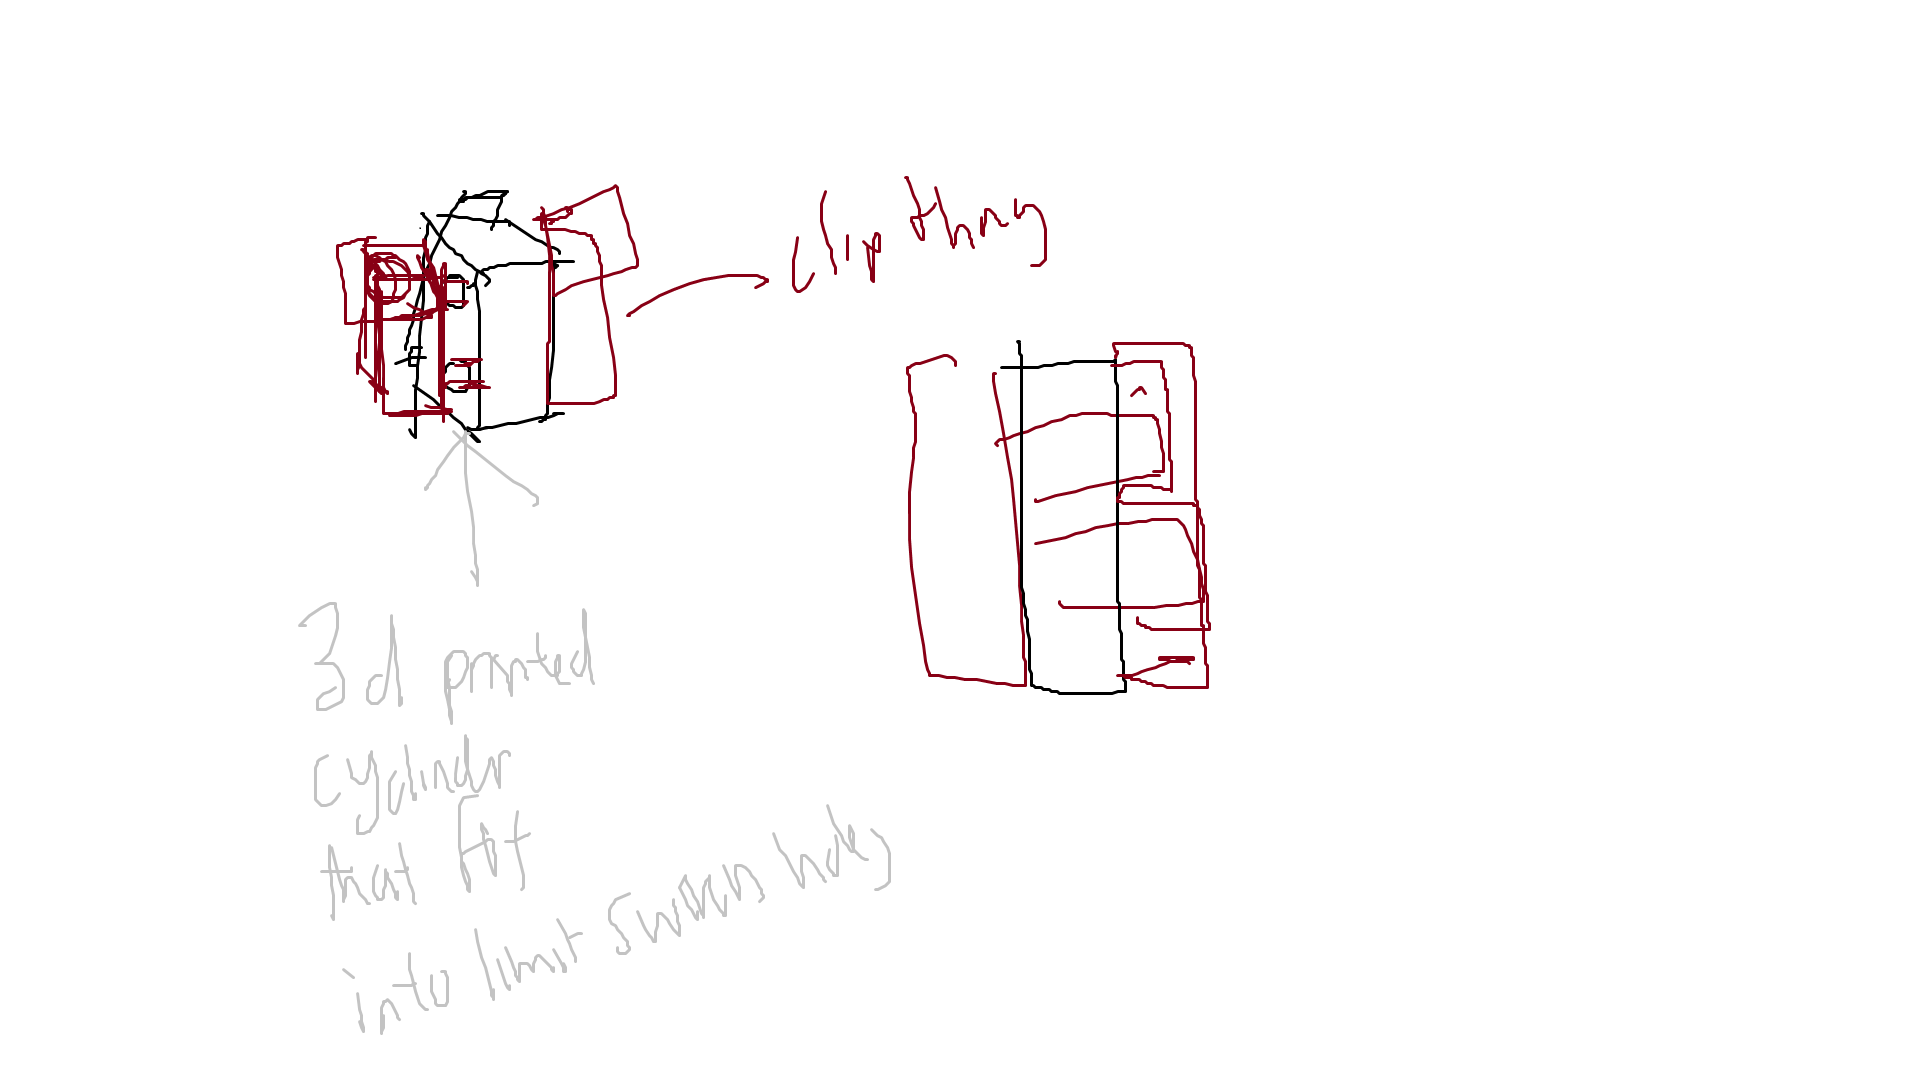 clip thing
3d printed
cylinder
that fit
into limit switches holes